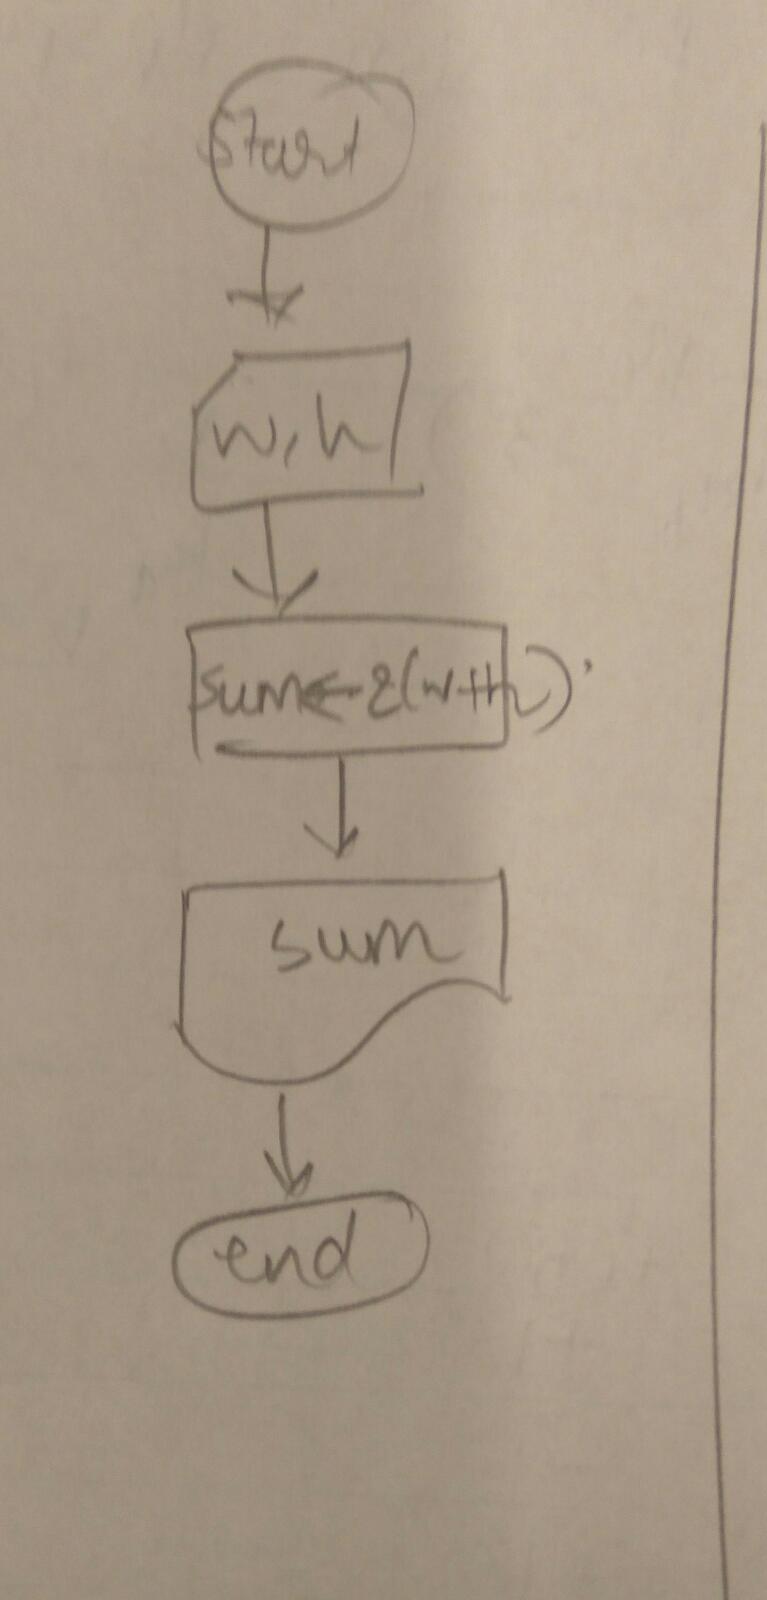 start
w, h
sum←2(w+h)
sum
end